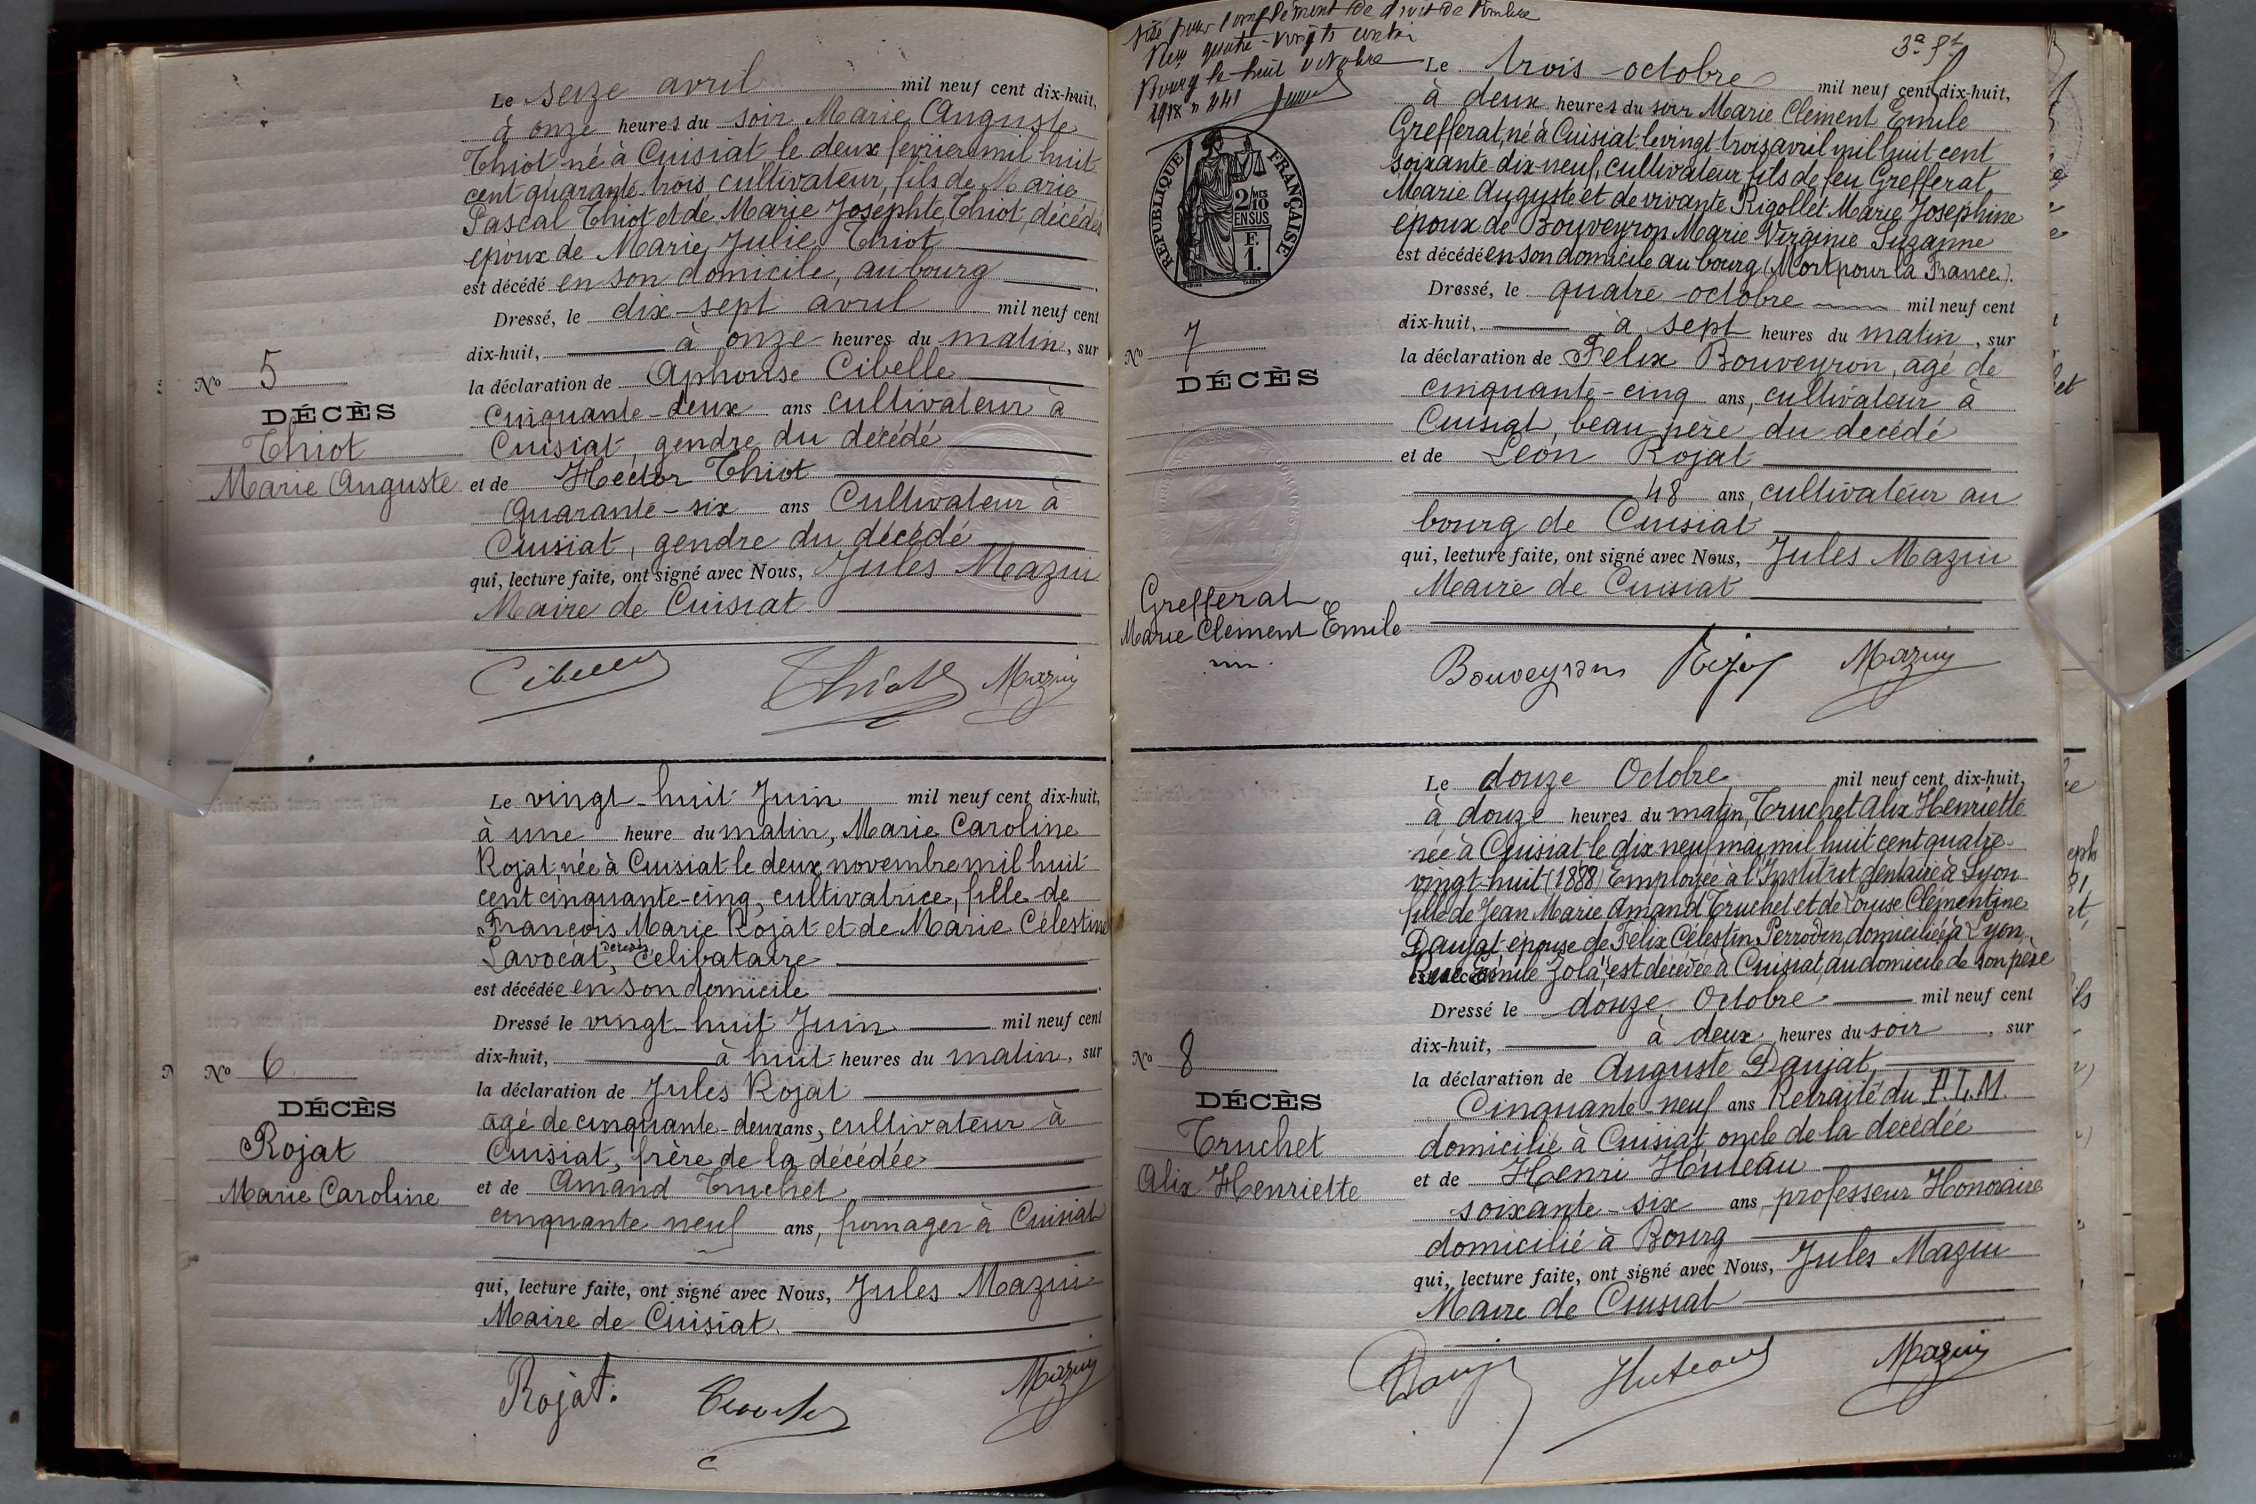 Le seize avril mil neuf cent dix-huit,
à onze heures du soir Marie Auguste
Thiot né à Cuisiat le deux février mil huit
cent quarante-trois cultivateur, fils de Marie
Pascal Thiot et de Marie Josephte Thiot, décédés
époux de Marie Julie Thiot
est décédé en son domicile, au bourg
Dressé, le dix-sept avril mil neuf cent
dix-huit, à onze heures du matin, sur
la déclaration de Aphonse Cibelle
Cinquante-deux ans cultivateur à
Cuisiat, gendre du décédé
et de Hector Thiot
Quarante-six ans Cultivateur à
Cuisiat, gendre du décédé
qui, lecture faite, ont signé avec Nous, Jules Mazuy
Maire de Cuisiat
No 5
DÉCÈS
Thiot
Marie Auguste
Cibelle Thiot Mazuy
Le vingt-huit Juin mil neuf cent dix-huit,
à une heure du matin, Marie Caroline
Rojat, née à Cuisiat le deux novembre mil huit
cent cinquante-cinq, cultivatrice, fille de
François Marie Rojat et de Marie Célestine
Lavocat, décédés, Celibataire
est décédée en son domicile
Dressé le vingt-huit Juin mil neuf cent
dix-huit, à huit heures du matin, sur
la déclaration de Jules Rojat
agé de cinquante-deux ans, cultivateur à
Cuisiat, frère de la décédée
et de Amand Truchet
cinquante neuf ans, fromager à Cuisiat
qui, lecture faite, ont signé avec Nous, Jules Mazuy
Maire de Cuisiat.
No 6
DÉCÈS
Rojat
Marie Caroline
Rojat. Truchet Mazuy
Visé pour complément de droit de timbre
Reçu quatre-vingts centimes
Bourg le huit octobre
1918 n 241
3a 8t
RÉPUBLIQUE FRANÇAISE
2 MES
10
EN SUS
F.
1.
Le trois octobre mil neuf cent dix-huit,
à deux heures du soir Marie Clément Emile
Grefferat, né à Cuisiat le vingt trois avril mil huit cent
soixante dix-neuf, cultivateur fils de feu Grefferat
Marie Auguste et de vivante Rigollet Marie Josephine
époux de Bouveyron Marie Virginie Suzanne
est décédé en son domicile au bourg (Mort pour la France).
Dressé, le quatre octobre mil neuf cent
dix-huit, à sept heures du matin, sur
la déclaration de Félix Bouveyron, agé de
cinquante-cinq ans, cultivateur à
Cuisiat, beau-père du décédé
et de Léon Rojat
48 ans, cultivateur au
bourg de Cuisiat
qui, lecture faite, ont signé avec Nous, Jules Mazuy
Maire de Cuisiat
No 7
DÉCÈS
Grefferat
Marie Clément Emile
Bouveyron Rojat Mazuy
Le douze Octobre mil neuf cent dix-huit,
à douze heures du matin, Truchet Alix Henriette
née à Cuisiat le dix neuf mai mil huit cent quatre-
vingt-huit (1888) Employée à l'Institut dentaire à Lyon
fille de Jean Marie Amand Truchet et de Louise Clémentine
Daujat, épouse de Félix Célestin Perrodin, domiciliée à Lyon,
Rue Emile Zola, est décédée à Cuisiat, au domicile de son père
Dressé le douze Octobre mil neuf cent
dix-huit, à deux heures du soir, sur
la déclaration de Auguste Daujat,
Cinquante-neuf ans Retraité du P.L.M.
domicilié à Cuisiat, oncle de la décédée
et de Henri Huteau
soixante-six ans, professeur Honoraire
domicilié à Bourg
qui, lecture faite, ont signé avec Nous, Jules Mazuy
Maire de Cuisiat
No 8
DÉCÈS
Truchet
Alix Henriette
Daujat Huteau Mazuy